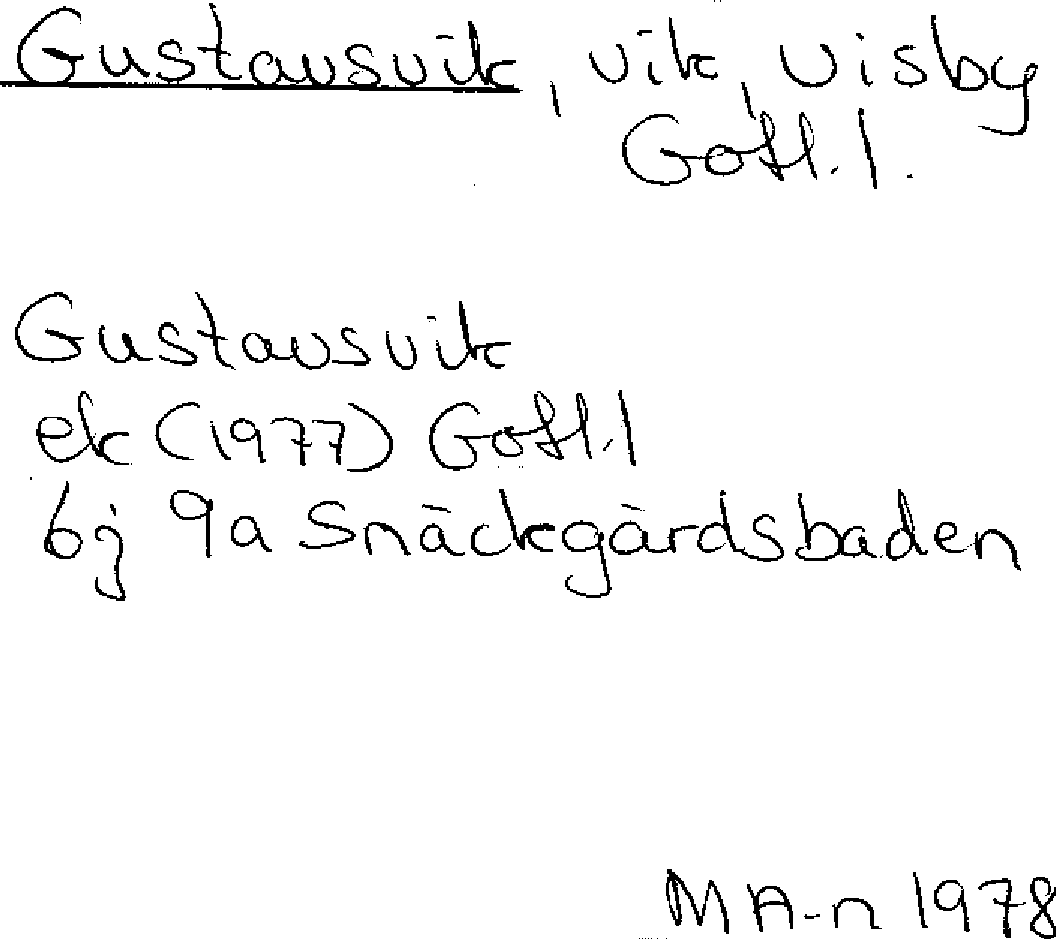 Gustavsvik, vik, Visby
Gotl. l.
Gustavsvik
ek (1977) Gotl. l
6j 9a Snäckgärdsbaden
MA-n 1978